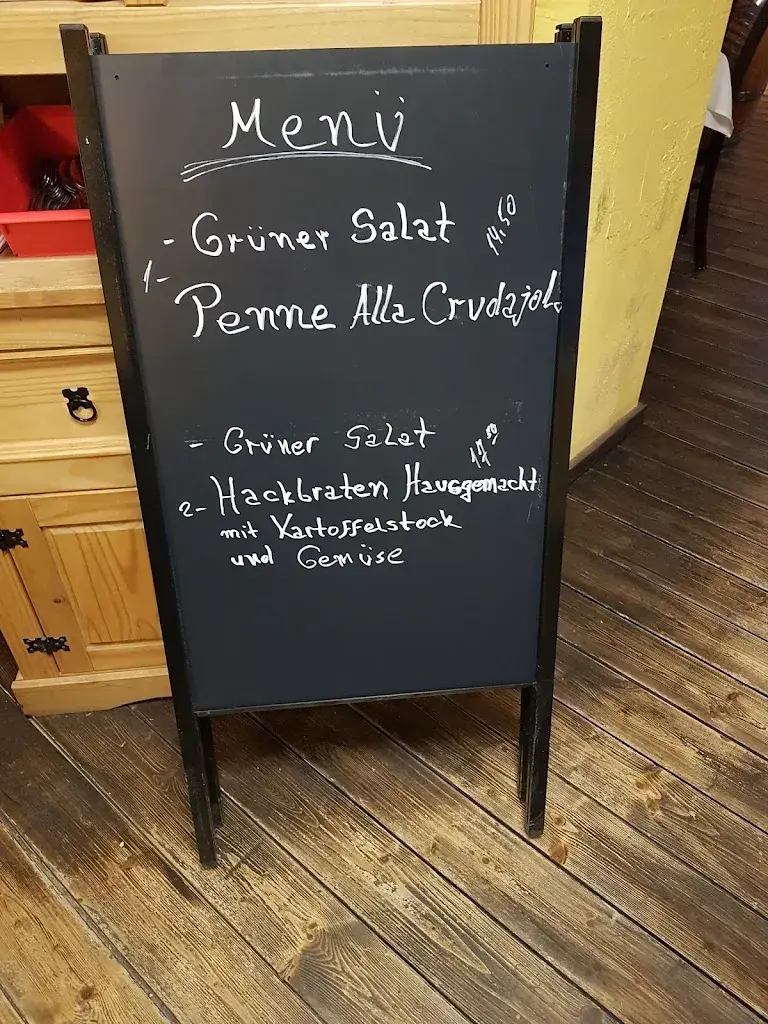 Menü
- Grüner Salat 14,50
1- Penne Alla Crudajola
- Grüner Salat 17,50
2- Hackbraten Hausgemacht
mit Kartoffelstock
und Gemüse